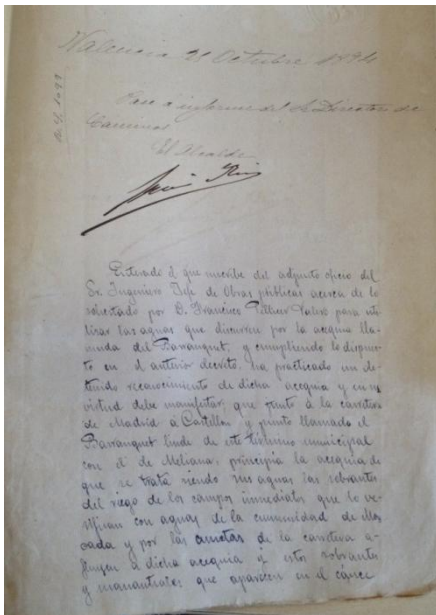 Valencia 21 Octubre 1894
Pase a informe del Sr Director de
Caminos
El Alcalde
Enterado el que suscribe del adjunto oficio del
Sr. Ingeniero Jefe de Obras públicas acerca de lo
solicitado por D. Francisco Pellicer para uti
lizar las aguas que discurren por la acequia lla-
mada del Barranquet, y cumpliendo lo dispues
to en el anterior decreto, ha practicado un de-
tenido reconocimiento de dicha acequia y en su
virtud debe manifestar; que junto á la carretera
de Madrid a Castellon y punto llamado el
Barranquet linde de este término municipal
con el de Meliana, principia la acequia de
que se trata siendo sus aguas las sobrantes
del riego de los campos inmediatos que lo ve-
rifican con aguas de la comunidad de Mon
cada y por las cunetas de la carretera a-
fluyen a dicha acequia y estos sobrantes
y manantiales que aparecen en el cauce